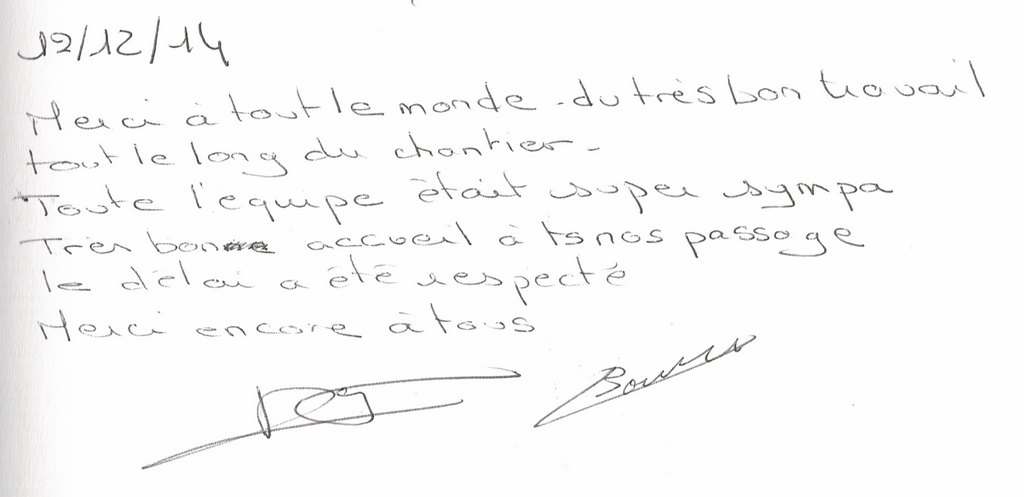 12/12/14
Merci à tout le monde - du très bon travail
tout le long du chantier -
Toute l'équipe était super sympa
Très bon accueil à ts nos passage
le délai a été respecté
Merci encore à tous